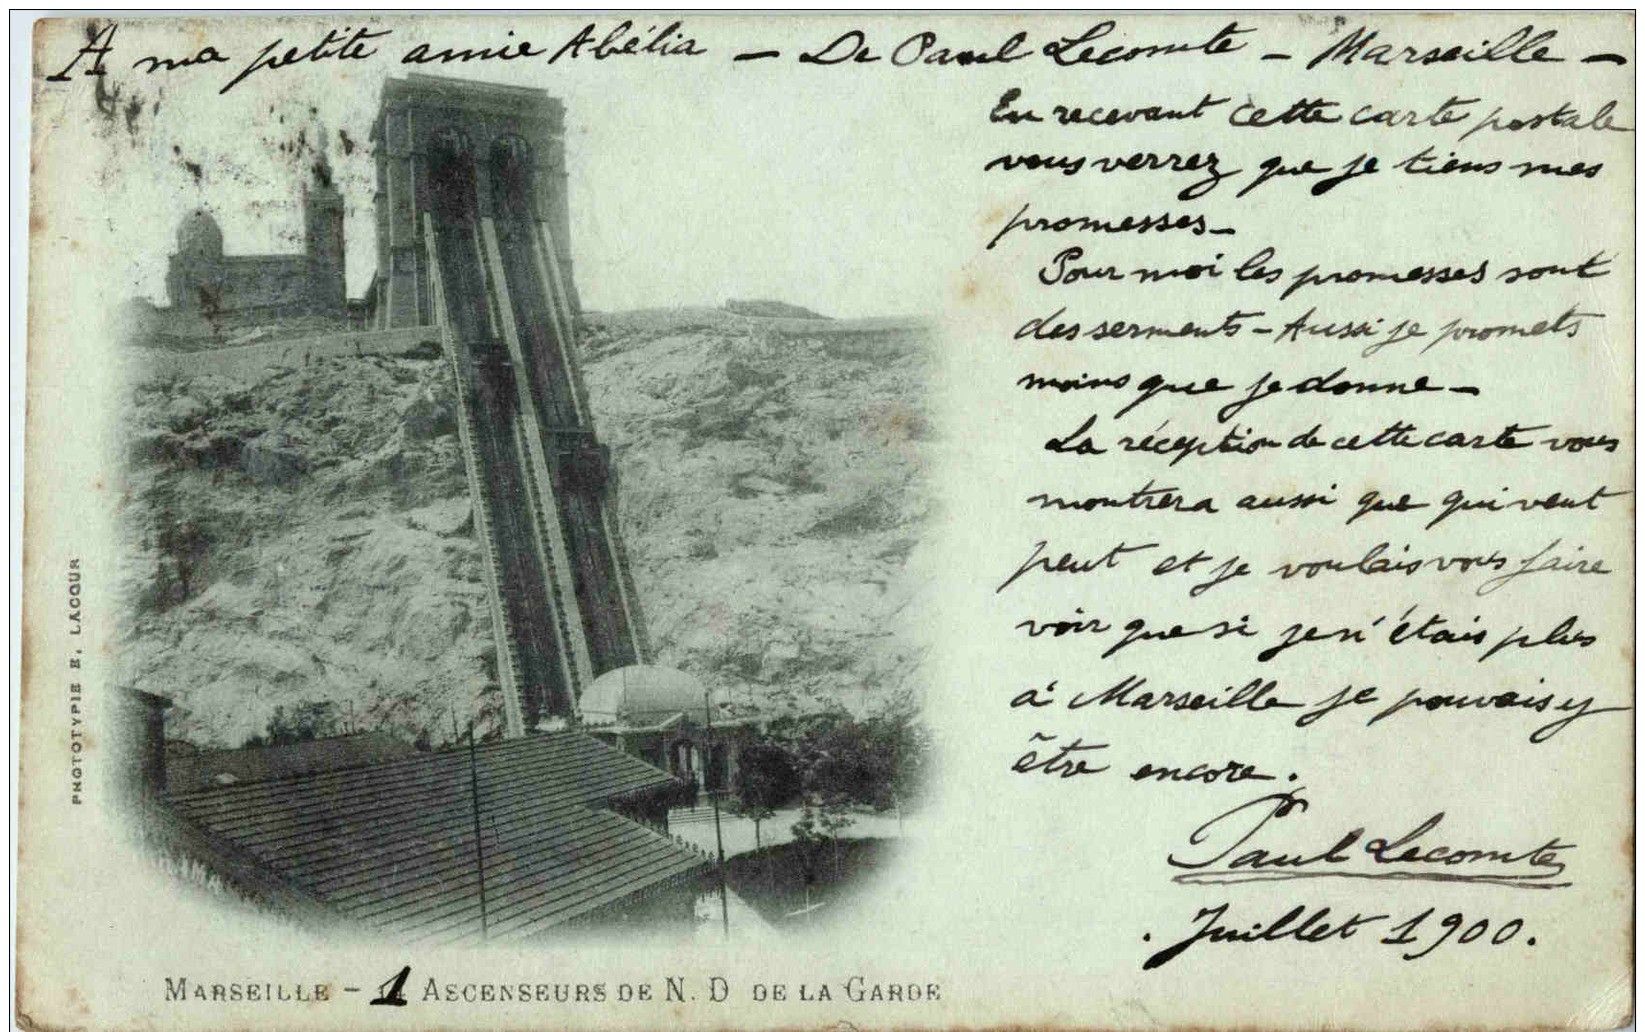 A ma petite amie Abélia – De Paul Lecomte – Marseille –
En recevant cette carte postale
vous verrez que je tiens mes
promesses –
Pour moi les promesses sont
des serments – Aussi je promets
moins que je donne –
La réception de cette carte vous
montrera aussi que qui veut
peut et je voulais vous faire
voir que si je n'étais plus
à Marseille je pouvais y
être encore.
Paul Lecomte
. Juillet 1900.
PHOTOTYPIE E. LACOUR
MARSEILLE – 1 ASCENSEURS DE N. D DE LA GARDE